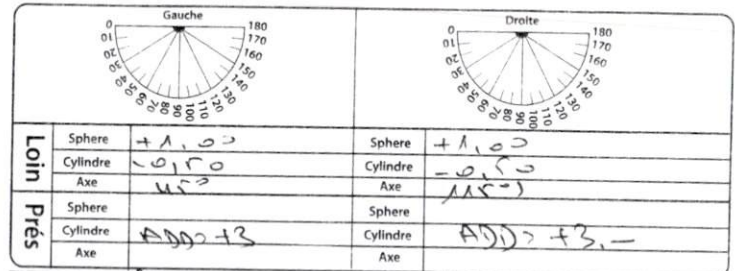 Gauche Droite
0 10 20 30 40 50 60 70 80 90 100 110 120 130 140 150 160 170 180
0 10 20 30 40 50 60 70 80 90 100 110 120 130 140 150 160 170 180
Loin
Sphere +1,00 Sphere +1,00
Cylindre -0,50 Cylindre -0,50
Axe 45° Axe 115°
Prés
Sphere Sphere
Cylindre ADD=+3 Cylindre ADD=+3,-
Axe Axe